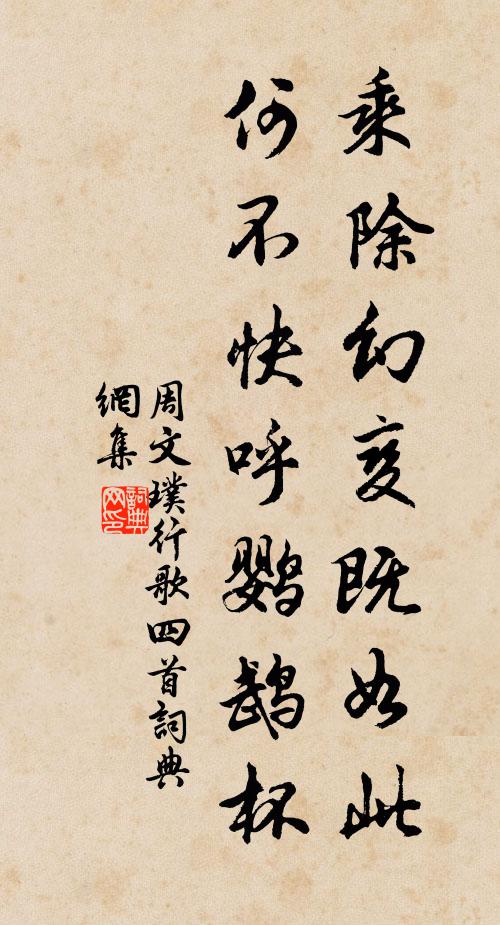 乘除幻变既如此
何不快呼鹦鹉杯
周文璞行歌四首詞典
網集
詞典
网印